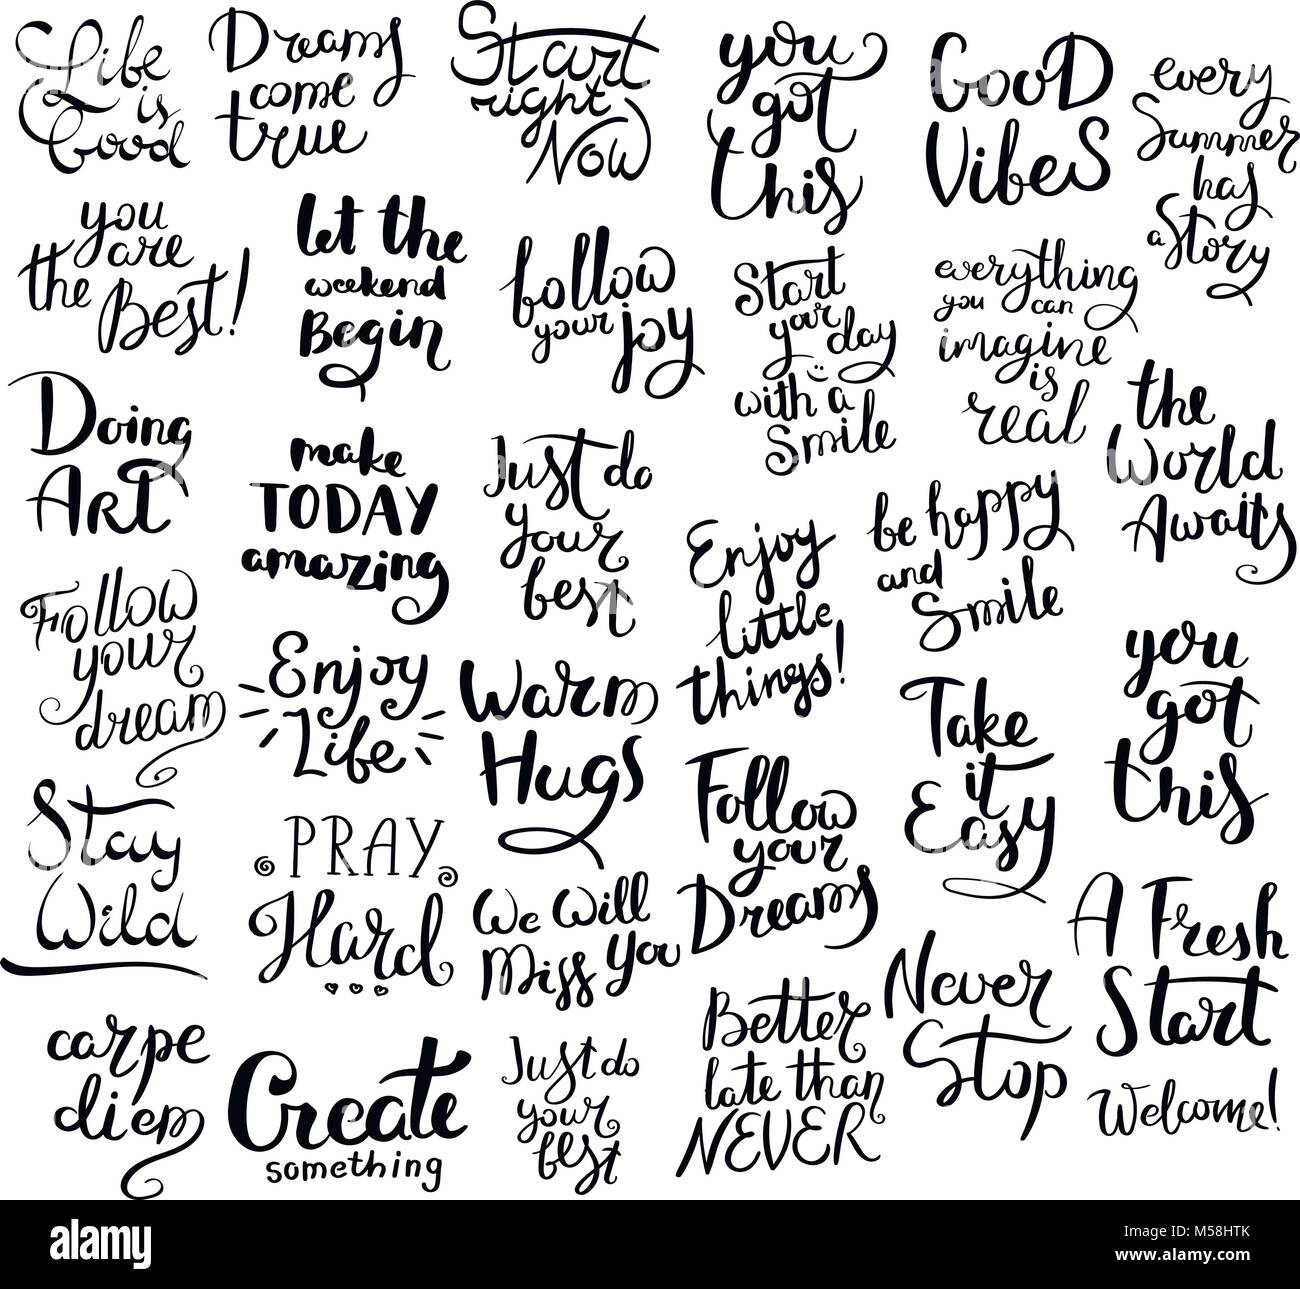 Life
is
Good
Dreams
come
true
Start
right
Now
you
got
this
Good
Vibes
every
Summer
has
a Story
you
are
the Best!
let the
weekend
Begin
follow
your joy
Start
your day
with a
Smile
everything
you can
imagine
is
real
the
World
Awaits
Doing
Art
make
TODAY
amazing
Just do
your
best
Enjoy
little
things!
be happy
and
Smile
you
got
this
Follow
your
dream
Enjoy
Life
Warm
Hugs
Take
it
Easy
Follow
your
Dreams
Stay
Wild
PRAY
Hard
We Will
Miss You
A Fresh
Start
Never
Stop
Better
late than
NEVER
carpe
diem
Create
something
Just do
your
best
Welcome!
alamy
alamy stock photo
M58HTK
www.alamy.com